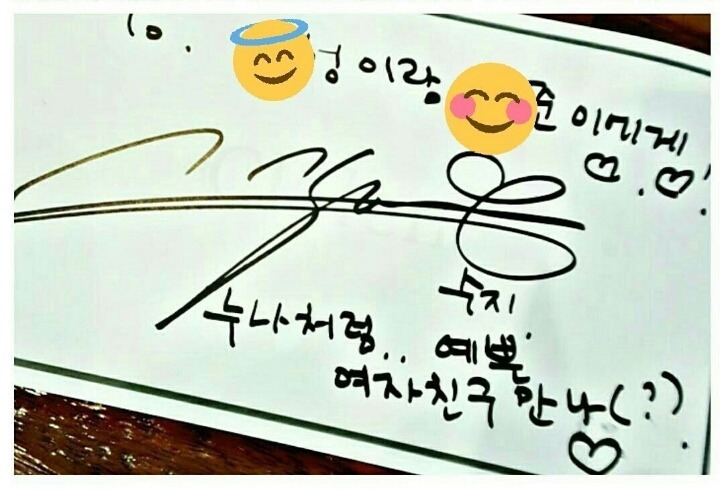 To. 성이랑 준이에게 ♡.♡!
수지
누나처럼.. 예쁜
여자친구 만나(?).
♡